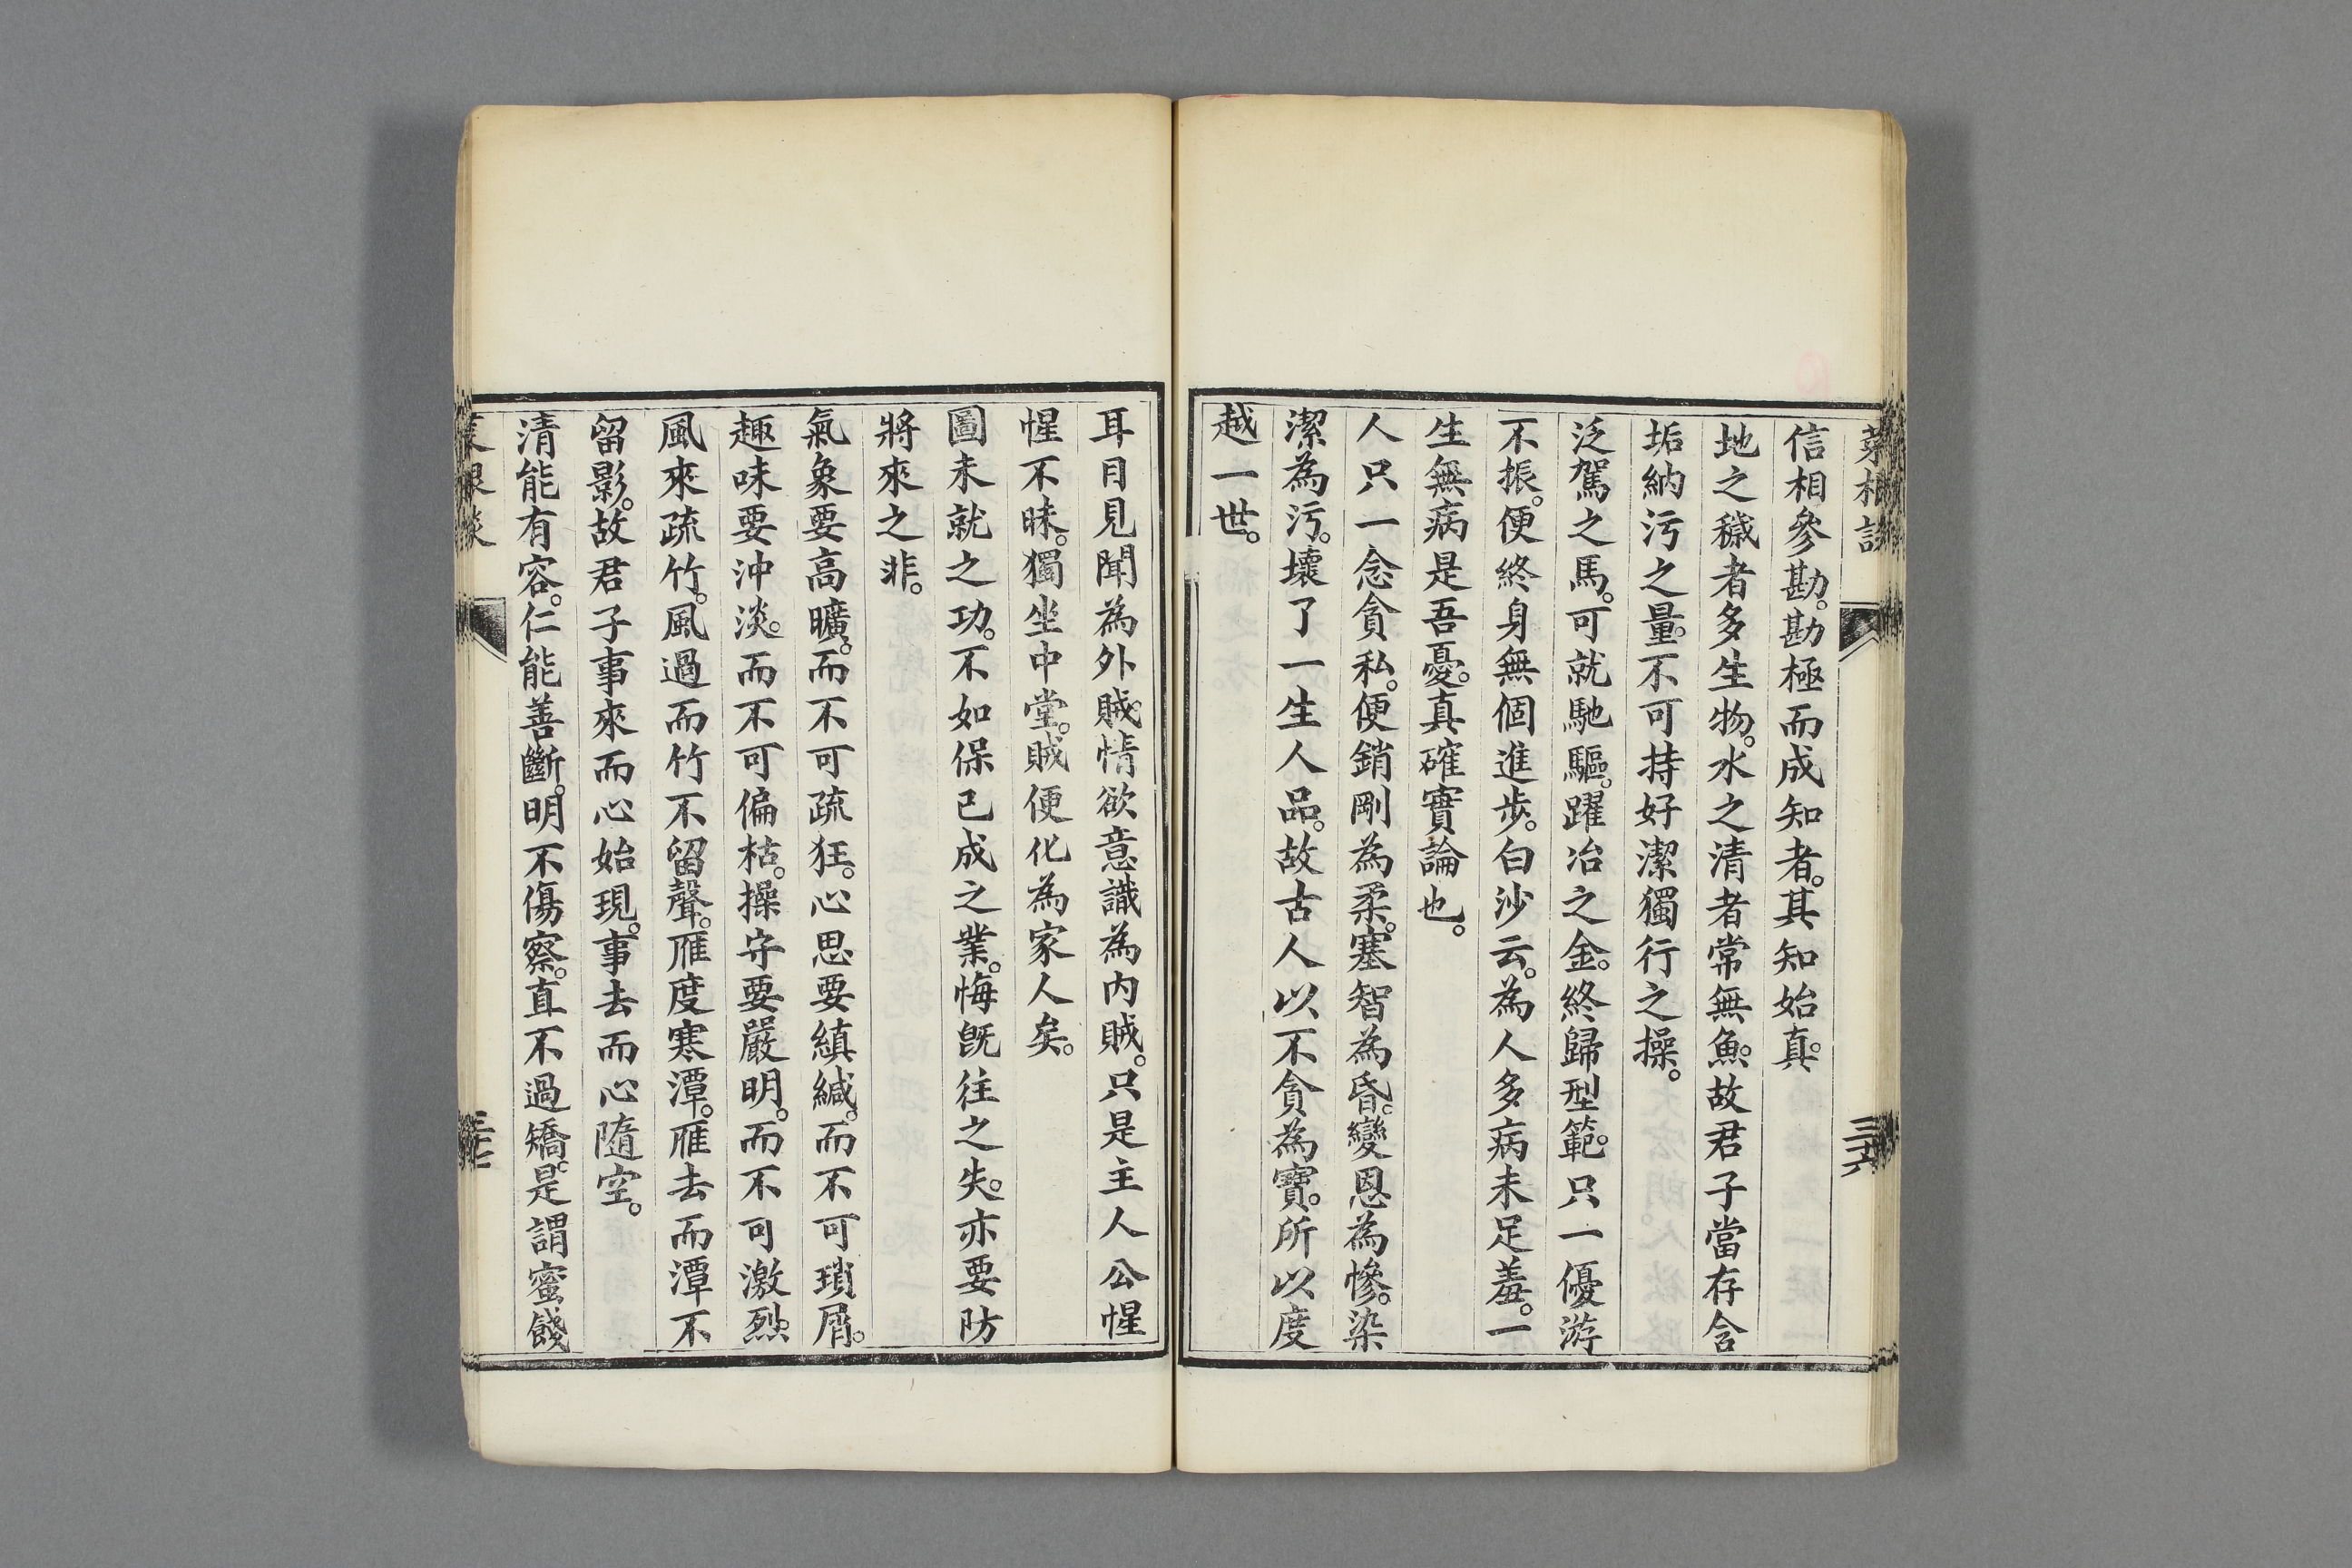 菜根談
三十六
信相參勘。勘極而成知者。其知始真。
地之穢者多生物。水之清者常無魚。故君子當存含
垢納污之量。不可持好潔獨行之操。
泛駕之馬。可就馳驅。躍冶之金。終歸型範。只一優游
不振。便終身無個進步。白沙云。為人多病未足羞。一
生無病是吾憂。真確實論也。
人只一念貪私。便銷剛為柔。塞智為昏。變恩為慘。染
潔為污。壞了一生人品。故古人以不貪為寶。所以度
越一世。
耳目見聞為外賊。情欲意識為內賊。只是主人公惺
惺不昧。獨坐中堂。賊便化為家人矣。
圖未就之功。不如保已成之業。悔既往之失。亦要防
將來之非。
氣象要高曠。而不可疏狂。心思要縝緘。而不可瑣屑。
趣味要沖淡。而不可偏枯。操守要嚴明。而不可激烈。
風來疏竹。風過而竹不留聲。雁度寒潭。雁去而潭不
留影。故君子事來而心始現。事去而心隨空。
清能有容。仁能善斷。明不傷察。直不過矯。是謂蜜餞
菜根談
三十七